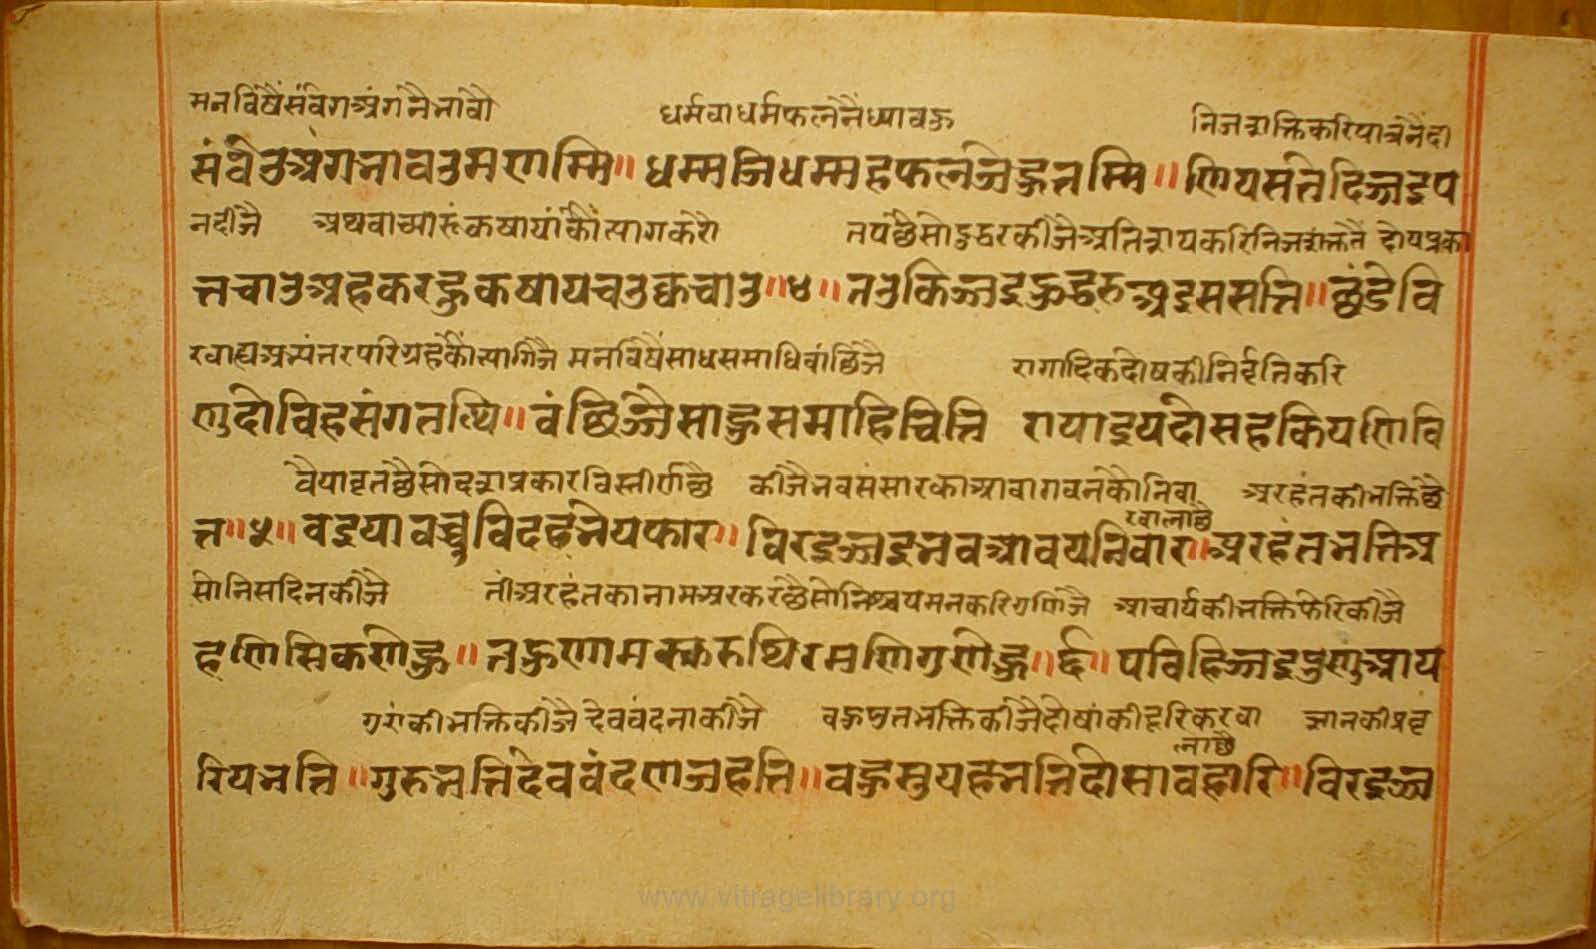 मन विषैं संवेग अंगनै भावौ धर्म वा धर्मफलनैं ध्यावहु निज शक्ति करि पात्रनैं दा
संवेउ अंग भावउ मणम्मि॥ धम्मजि धम्मह फल जेहु तम्मि॥ णिय सत्ते दिज्जइ प
न दीजै अथवा च्यारूं कषायांकौं त्याग करो तप छै सो दुद्धर कीजै अति शय करि निज शक्ति तैं दोय प्रका
त्त चाउ अह करहु कषाय चउक्क चाउ॥४॥ तउ किज्जइ दुद्धरु अइ ससत्ति॥ छंडेवि
र वाह्य अभ्यंतर परिग्रहकौं त्यागिजै मन विषैं साध समाधि वांछिजै रागादिक दोषकी निर्वृति करि
णु दोविह संग तत्थि॥ वंछिज्जै साहु समाहि चित्ति रायाइय दोसह किय णिवि
वैयावृत छै सो दश प्रकार विस्तीर्ण छै कीजै भव संसारका आवागवनकौ निवा अरहंतकी भक्ति छै
रवालाछै
त्त॥५॥ वइयावच्चु वि दहभेय फार॥ विरइज्जइ भव आवय निवार॥ अरहंत भत्ति अ
सो निस दिन कीजै तीं अरहंतका नाम अरकर छै सो निश्चय मन करि गणिजै आचार्यकी भक्ति फेरि कीजै
हणिसि करणेहु॥ तहु णाम स्करु थिर मणि गुणेहु॥६॥ पविहिज्जइ पुणु आय
गुरांकी भक्ति कीजै देव वंदना कीजै वहुश्रुत भक्ति कीजै दोषांकी दूरि करवा ज्ञानकी प्रवृ
लाछै
रिय भत्ति॥ गुरु भत्ति देव वंदण जहत्ति॥ वहुसुयह भत्ति दोसावहारि॥ विरइज्ज
www.vitragelibrary.org